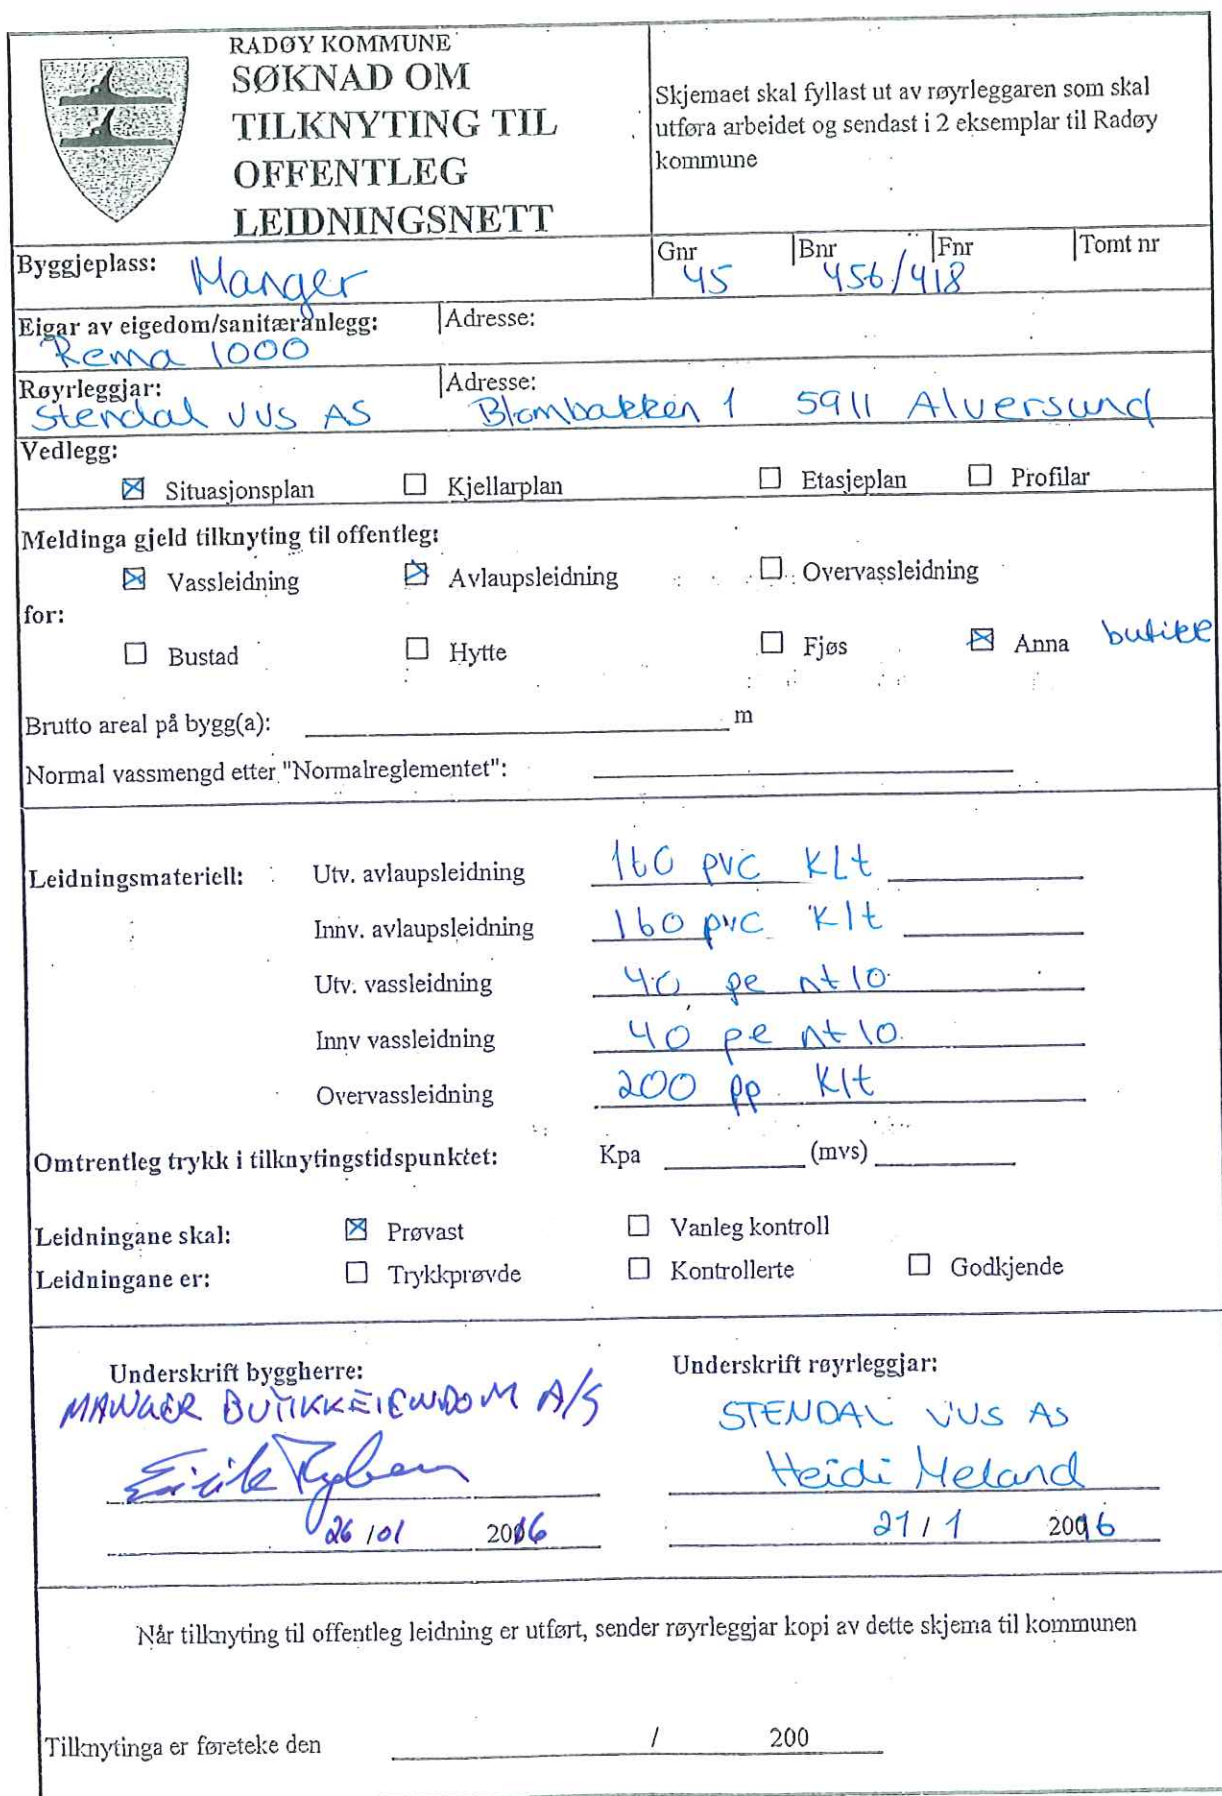 RADØY KOMMUNE
SØKNAD OM
TILKNYTING TIL
OFFENTLEG
LEIDNINGSNETT
Skjemaet skal fyllast ut av røyrleggaren som skal
utføra arbeidet og sendast i 2 eksemplar til Radøy
kommune
Byggjeplass: Manger
Gnr Bnr Fnr Tomt nr
45 456/418
Eigar av eigedom/sanitæranlegg: Adresse:
Rema 1000
Røyrleggjar: Adresse:
Stendal VVS AS Blombakken 1 5911 Alversund
Vedlegg:
☒ Situasjonsplan ☐ Kjellarplan ☐ Etasjeplan ☐ Profilar
Meldinga gjeld tilknyting til offentleg:
☒ Vassleidning ☒ Avlaupsleidning ☐ Overvassleidning
for:
☐ Bustad ☐ Hytte ☐ Fjøs ☒ Anna butikk
Brutto areal på bygg(a): m
Normal vassmengd etter "Normalreglementet":
Leidningsmateriell: Utv. avlaupsleidning 160 pvc Klt
Innv. avlaupsleidning 160 pvc Klt
Utv. vassleidning 40 pe nt 10
Innv vassleidning 40 pe nt 10.
Overvassleidning 200 pp. Klt
Omtrentleg trykk i tilknytingstidspunktet: Kpa (mvs)
Leidningane skal: ☒ Prøvast ☐ Vanleg kontroll
Leidningane er: ☐ Trykkprøvde ☐ Kontrollerte ☐ Godkjende
Underskrift byggherre: Underskrift røyrleggjar:
MANGER BUTIKKEIENDOM A/S STENDAL VVS AS
Eirik Heidi Meland
26/01 2016 21/1 2016
Når tilknyting til offentleg leidning er utført, sender røyrleggjar kopi av dette skjema til kommunen
Tilknytinga er føreteke den / 200